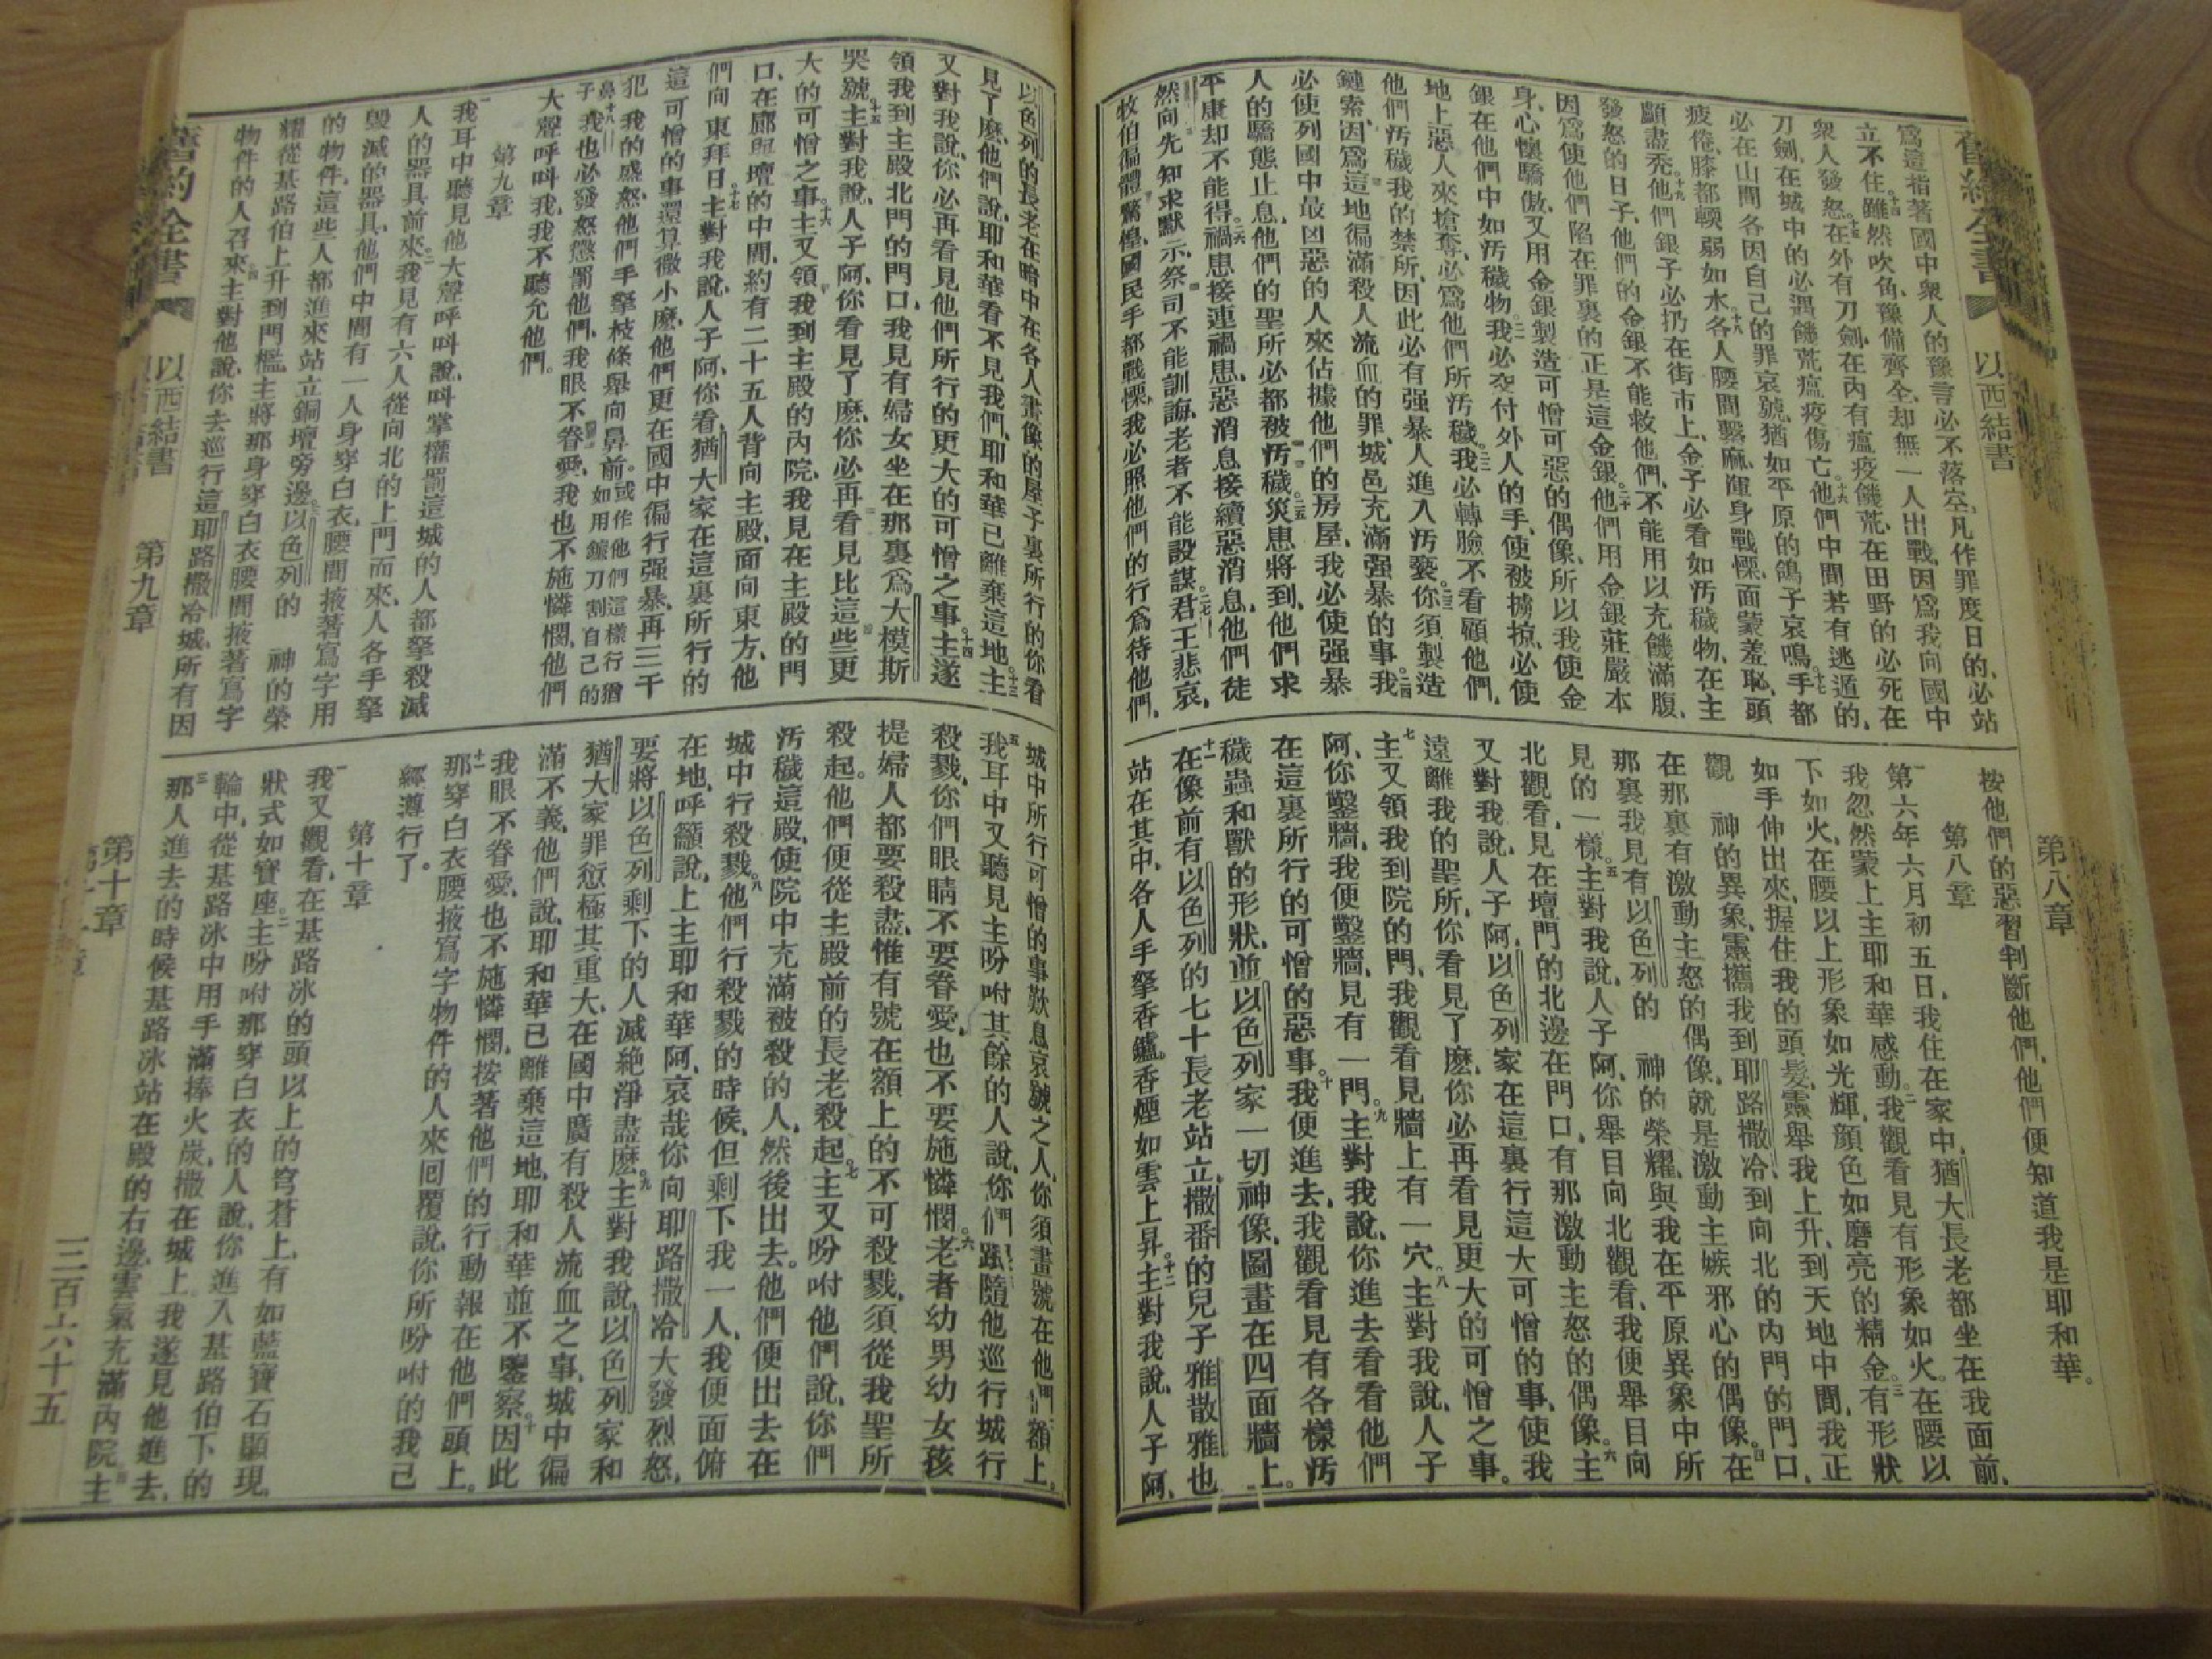 舊約全書
以西結書
第八章
爲這指著國中衆人的豫言必不落空凡作罪度日的必站
立不住十四雖然吹角豫備齊全却無一人出戰因爲我向國中
衆人發怒十五在外有刀劍在內有瘟疫饑荒在田野的必死在
刀劍在城中的必遇饑荒瘟疫傷亡十六他們中間若有逃遁的
必在山間各因自己的罪哀號猶如平原的鴿子哀鳴十七手都
疲倦膝都輭弱如水十八各人腰間繫麻渾身戰慄面蒙羞恥頭
顱盡禿十九他們銀子必扔在街市上金子必看如汚穢物在主
發怒的日子他們的金銀不能救他們不能用以充饑滿腹
因爲使他們陷在罪裏的正是這金銀二十他們用金銀莊嚴本
身心懷驕傲又用金銀製造可憎可惡的偶像所以我使金
銀在他們中如汚穢物二一我必交付外人的手使被擄掠必使
地上惡人來搶奪必爲他們所汚穢二二我必轉臉不看顧他們
他們汚穢我的禁所因此必有强暴人進入汚褻二三你須製造
鏈索因爲這地徧滿殺人流血的罪城邑充滿强暴的事二四我
必使列國中最凶惡的人來佔據他們的房屋我必使强暴
人的驕態止息他們的聖所必都被汚穢二五災患將到他們求
平康却不能得二六禍患接連禍患惡消息接續惡消息他們徒
然向先知求默示祭司不能訓誨老者不能設謀二七君王悲哀
牧伯徧體驚惶國民手都戰慄我必照他們的行爲待他們
按他們的惡習判斷他們他們便知道我是耶和華
第八章
一第六年六月初五日我住在家中猶大長老都坐在我面前
我忽然蒙上主耶和華感動二我觀看見有形象如火在腰以
下如火在腰以上形象如光輝顔色如磨亮的精金三有形狀
如手伸出來握住我的頭髮靈舉我上升到天地中間我正
觀 神的異象靈攜我到耶路撒冷到向北的內門的門口
在那裏有激動主怒的偶像就是激動主嫉邪心的偶像四在
那裏我見有以色列的 神的榮耀與我在平原異象中所
見的一樣五主對我說人子阿你舉目向北觀看我便舉目向
北觀看見在壇門的北邊在門口有那激動主怒的偶像六主
又對我說人子阿以色列家在這裏行這大可憎的事使我
遠離我的聖所你看見了麽你必再看見更大的可憎之事
七主又領我到院的門我觀看見牆上有一穴八主對我說人子
阿你鑿牆我便鑿牆見有一門九主對我說你進去看看他們
在這裏所行的可憎的惡事十我便進去我觀看見有各樣汚
穢蟲和獸的形狀並以色列家一切神像圖畫在四面牆上
十一在像前有以色列的七十長老站立撒番的兒子雅散雅也
站在其中各人手拏香鑪香煙如雲上昇十二主對我說人子阿
以色列的長老在暗中在各人畫像的屋子裏所行的你看
見了麽他們說耶和華看不見我們耶和華已離棄這地十三主
又對我說你必再看見他們所行的更大的可憎之事十四主遂
領我到主殿北門的門口我見有婦女坐在那裏爲大模斯
哭號十五主對我說人子阿你看見了麽你必再看見比這些更
大的可憎之事十六主又領我到主殿的內院我見在主殿的門
口在廊與壇的中間約有二十五人背向主殿面向東方他
們向東拜日十七主對我說人子阿你看猶大家在這裏所行的
這可憎的事還算微小麽他們更在國中徧行强暴再三干
犯我的盛怒他們手拏枝條舉向鼻前或作他們這樣行猶如用鐮刀割自己的鼻
子十八我也必發怒懲罰他們我眼不眷愛我也不施憐憫他們
大聲呼叫我我不聽允他們
第九章
一我耳中聽見他大聲呼叫說叫掌權罰這城的人都拏殺滅
人的器具前來二我見有六人從向北的上門而來人各手拏
毀滅的器具他們中間有一人身穿白衣腰間掖著寫字用
的物件這些人都進來站立銅壇旁邊三以色列的 神的榮
耀從基路伯上升到門檻主將那身穿白衣腰間掖著寫字
物件的人召來四主對他說你去巡行這耶路撒冷城所有因
城中所行可憎的事歎息哀號之人你須畫號在他們額上
五我耳中又聽見主吩咐其餘的人說你們跟隨他巡行城行
殺戮你們眼睛不要眷愛也不要施憐憫六老者幼男幼女孩
提婦人都要殺盡惟有號在額上的不可殺戮須從我聖所
殺起他們便從主殿前的長老殺起七主又吩咐他們說你們
汚穢這殿使院中充滿被殺的人然後出去他們便出去在
城中行殺戮八他們行殺戮的時候但剩下我一人我便面俯
在地呼籲說上主耶和華阿哀哉你向耶路撒冷大發烈怒
要將以色列剩下的人滅絕淨盡麽九主對我說以色列家和
猶大家罪愆極其重大在國中廣有殺人流血之事城中徧
滿不義他們說耶和華已離棄這地耶和華並不鑒察十因此
我眼不眷愛也不施憐憫按著他們的行動報在他們頭上
十一那穿白衣腰掖寫字物件的人來回覆說你所吩咐的我已
經遵行了
第十章
一我又觀看在基路冰的頭以上的穹蒼上有如藍寶石顯現
狀式如寶座二主吩咐那穿白衣的人說你進入基路伯下的
輪中從基路冰中用手滿捧火炭撒在城上我遂見他進去
三那人進去的時候基路冰站在殿的右邊雲氣充滿內院四主
舊約全書
以西結書
第九章
第十章
三百六十五